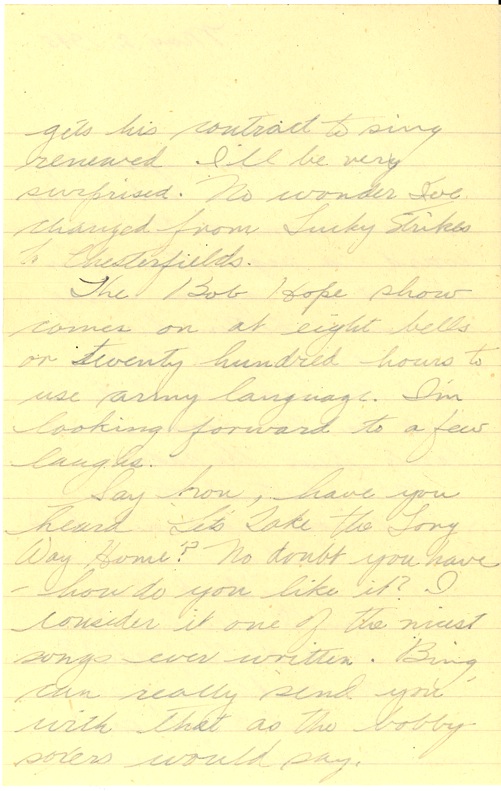 gets his contract to sing
renewed I'll be very
surprised. No wonder I've
changed from Lucky Strikes
to Chesterfields.
The Bob Hope show
comes on at eight bells
or twenty hundred hours to
use army language. I'm
looking forward to a few
laughs.
Say hon, have you
heard "Let's Take the Long
Way Home"? No doubt you have
- how do you like it? I
consider it one of the nicest
songs ever written. Bing
can really send you
with that as the bobby
soxers would say.